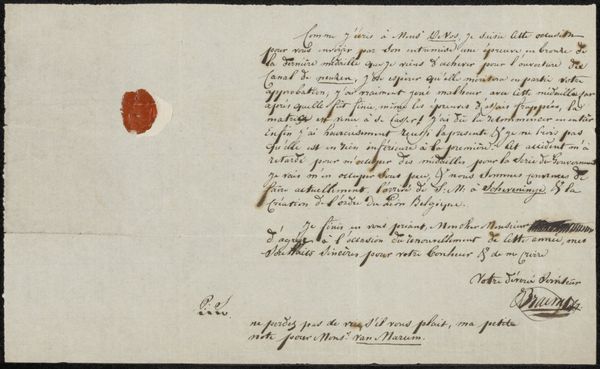 Comme j'écris à Monsr. De Vos, je saisis cette occasion
pour vous envoyer par son entremise une épreuve en bronze de
la dernière médaille que je viens d'achever pour l'ouverture du
Canal de neuzen, j'ose espérer qu'elle méritera en partie votre
approbation, j'ai vraiment joué malheur avec cette médaille, car
après quelle fût finie, même les épreuves d'essai frappées, la
matrice est venu à se casser! j'ai dû la recommencer en entier
Enfin j'ai heureusement réussi la présente & je ne crois pas
qu'elle est en rien inférieure à la première. Cet accident m'a
retardé pour m'occuper des médailles pour la Serie du Gouvernement
Je vais m'en occuper sous peu, & nous sommes convenus de
faire actuellement, l'arrivée de S. M. à Scheveninge & la
Création de l'ordre du Lion Belgique.
Je finis en vous priant, Mon cher Monsieur
d'agréer à l'occasion du renouvellement de cette année, mes
Souhaits Sincères pour votre bonheur & de me croire
Votre dévoué Serviteur
Braemt
P.S.
ne perdez pas de vue, s'il vous plait, ma petite
note pour Monsr. van Marum.